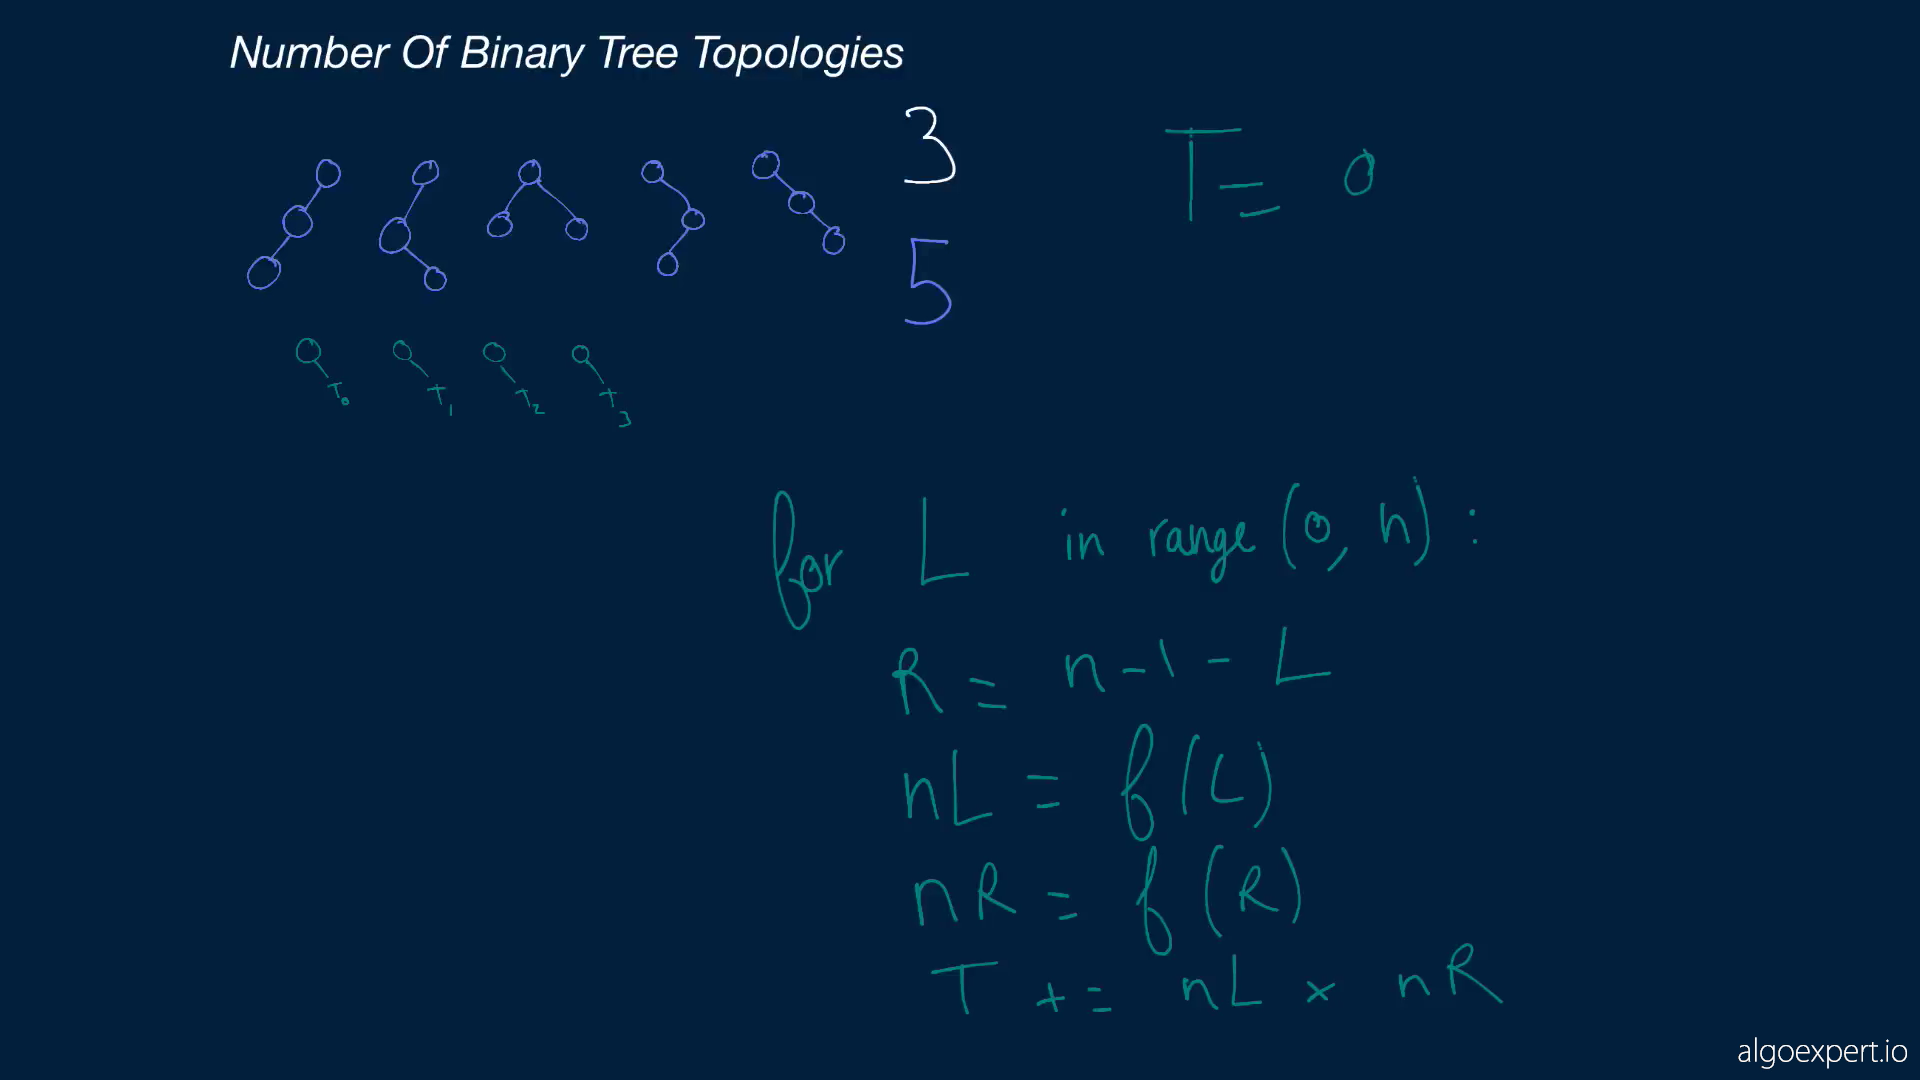 Number Of Binary Tree Topologies
3
T = 0
5
T0 T1 T2 T3
for L in range (0, n) :
R = n - 1 - L
nL = f(L)
nR = f(R)
T += nL x nR
algoexpert.io